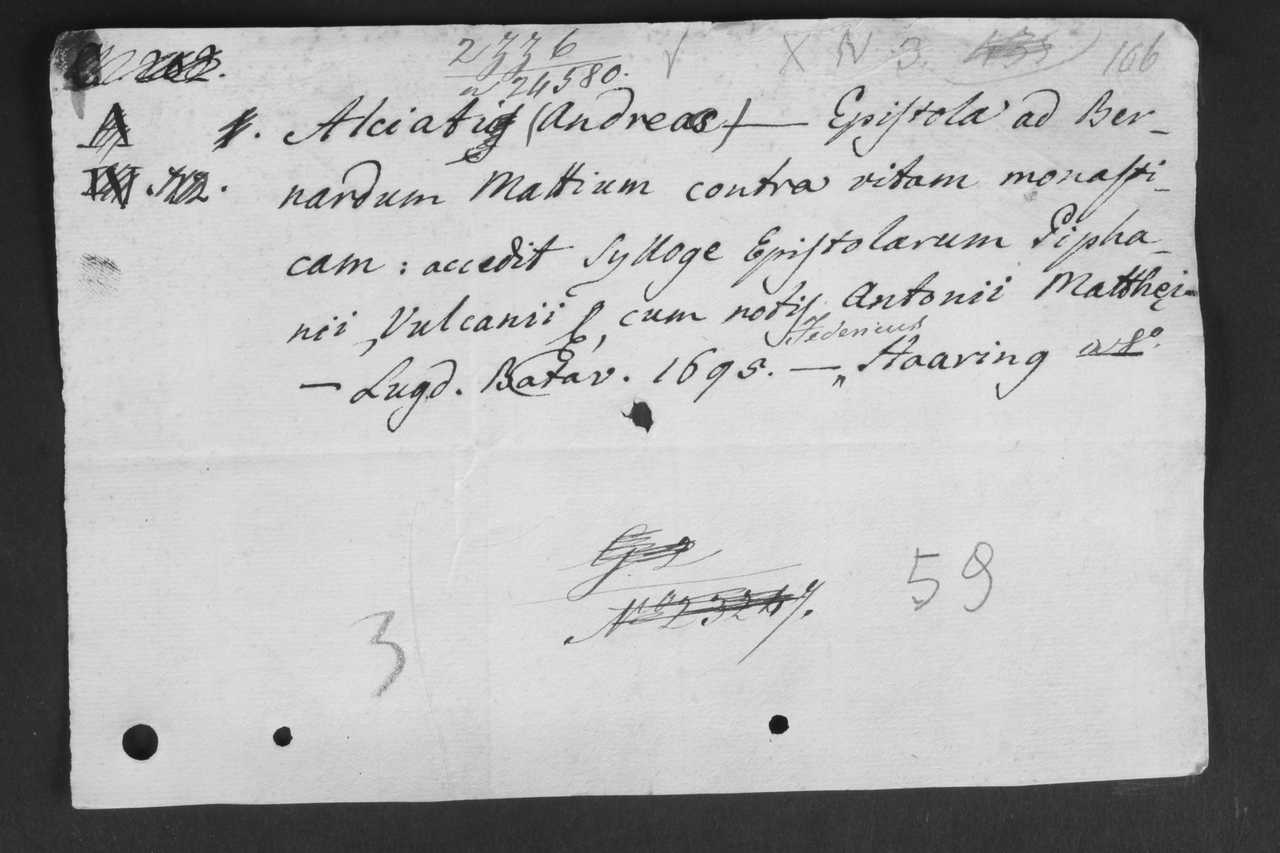 2336
24580.
X N 3.
166
Alciatis (Andreas) — Epistola ad Ber-
nardum Mattium contra vitam monasti-
cam : accedit Sylloge Epistolarum Gipha-
nii, Vulcanii &, cum notis Antonii Matthęi
Federicus
— Lugd. Batav. 1695. — „Haaring
No 23247.
3
59